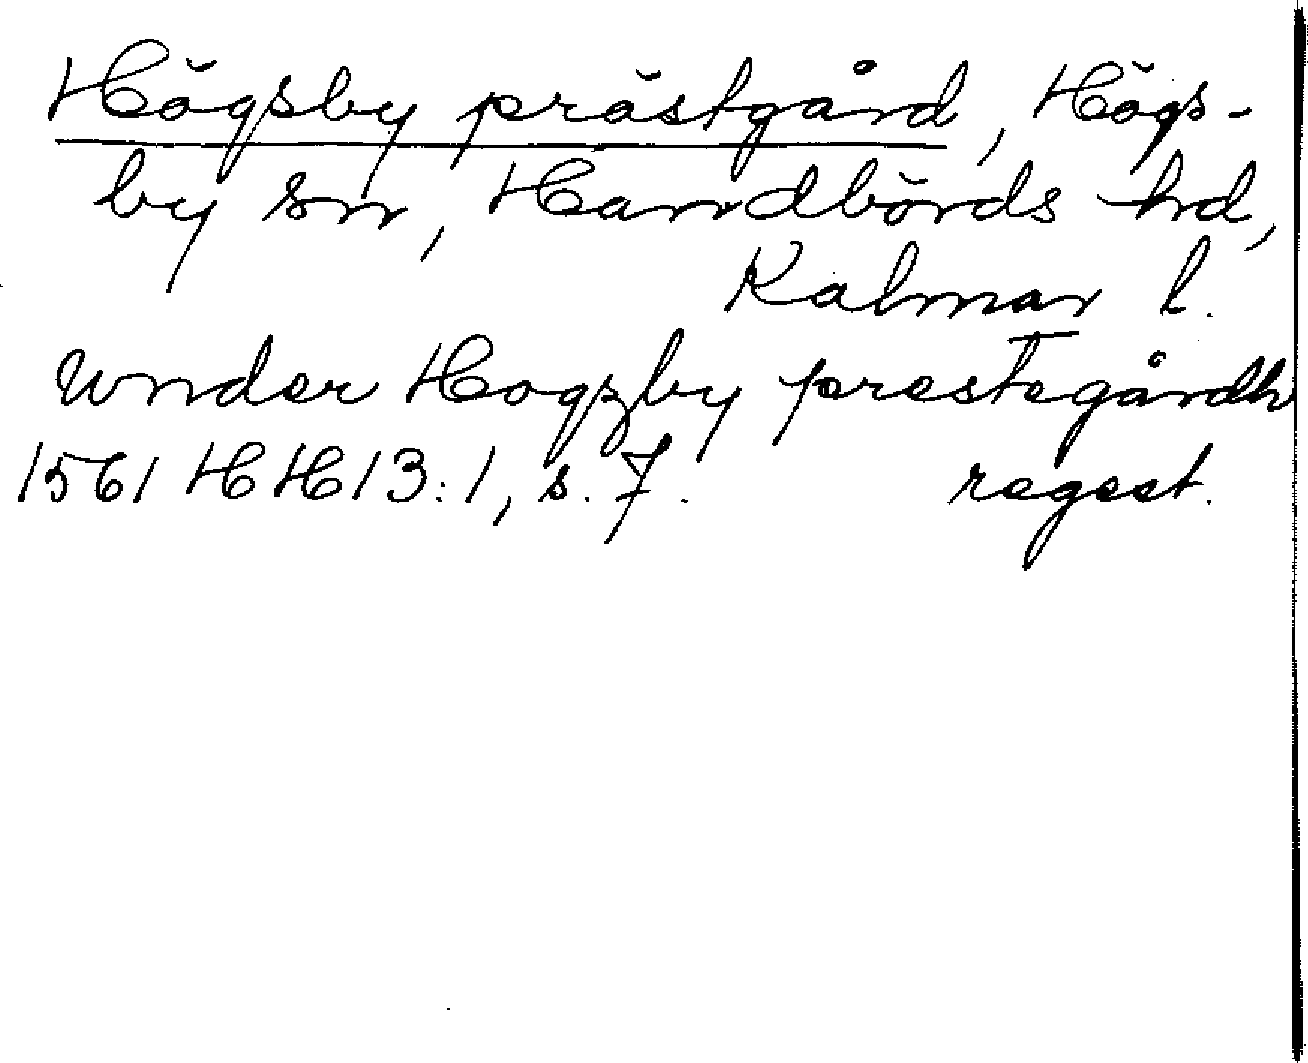 Högsby prästgård, Högs-
by sn, Handbörds hd,
Kalmar l.
Under Hogzby prestegårdh
1561 HH13:1, s. 7. regest.